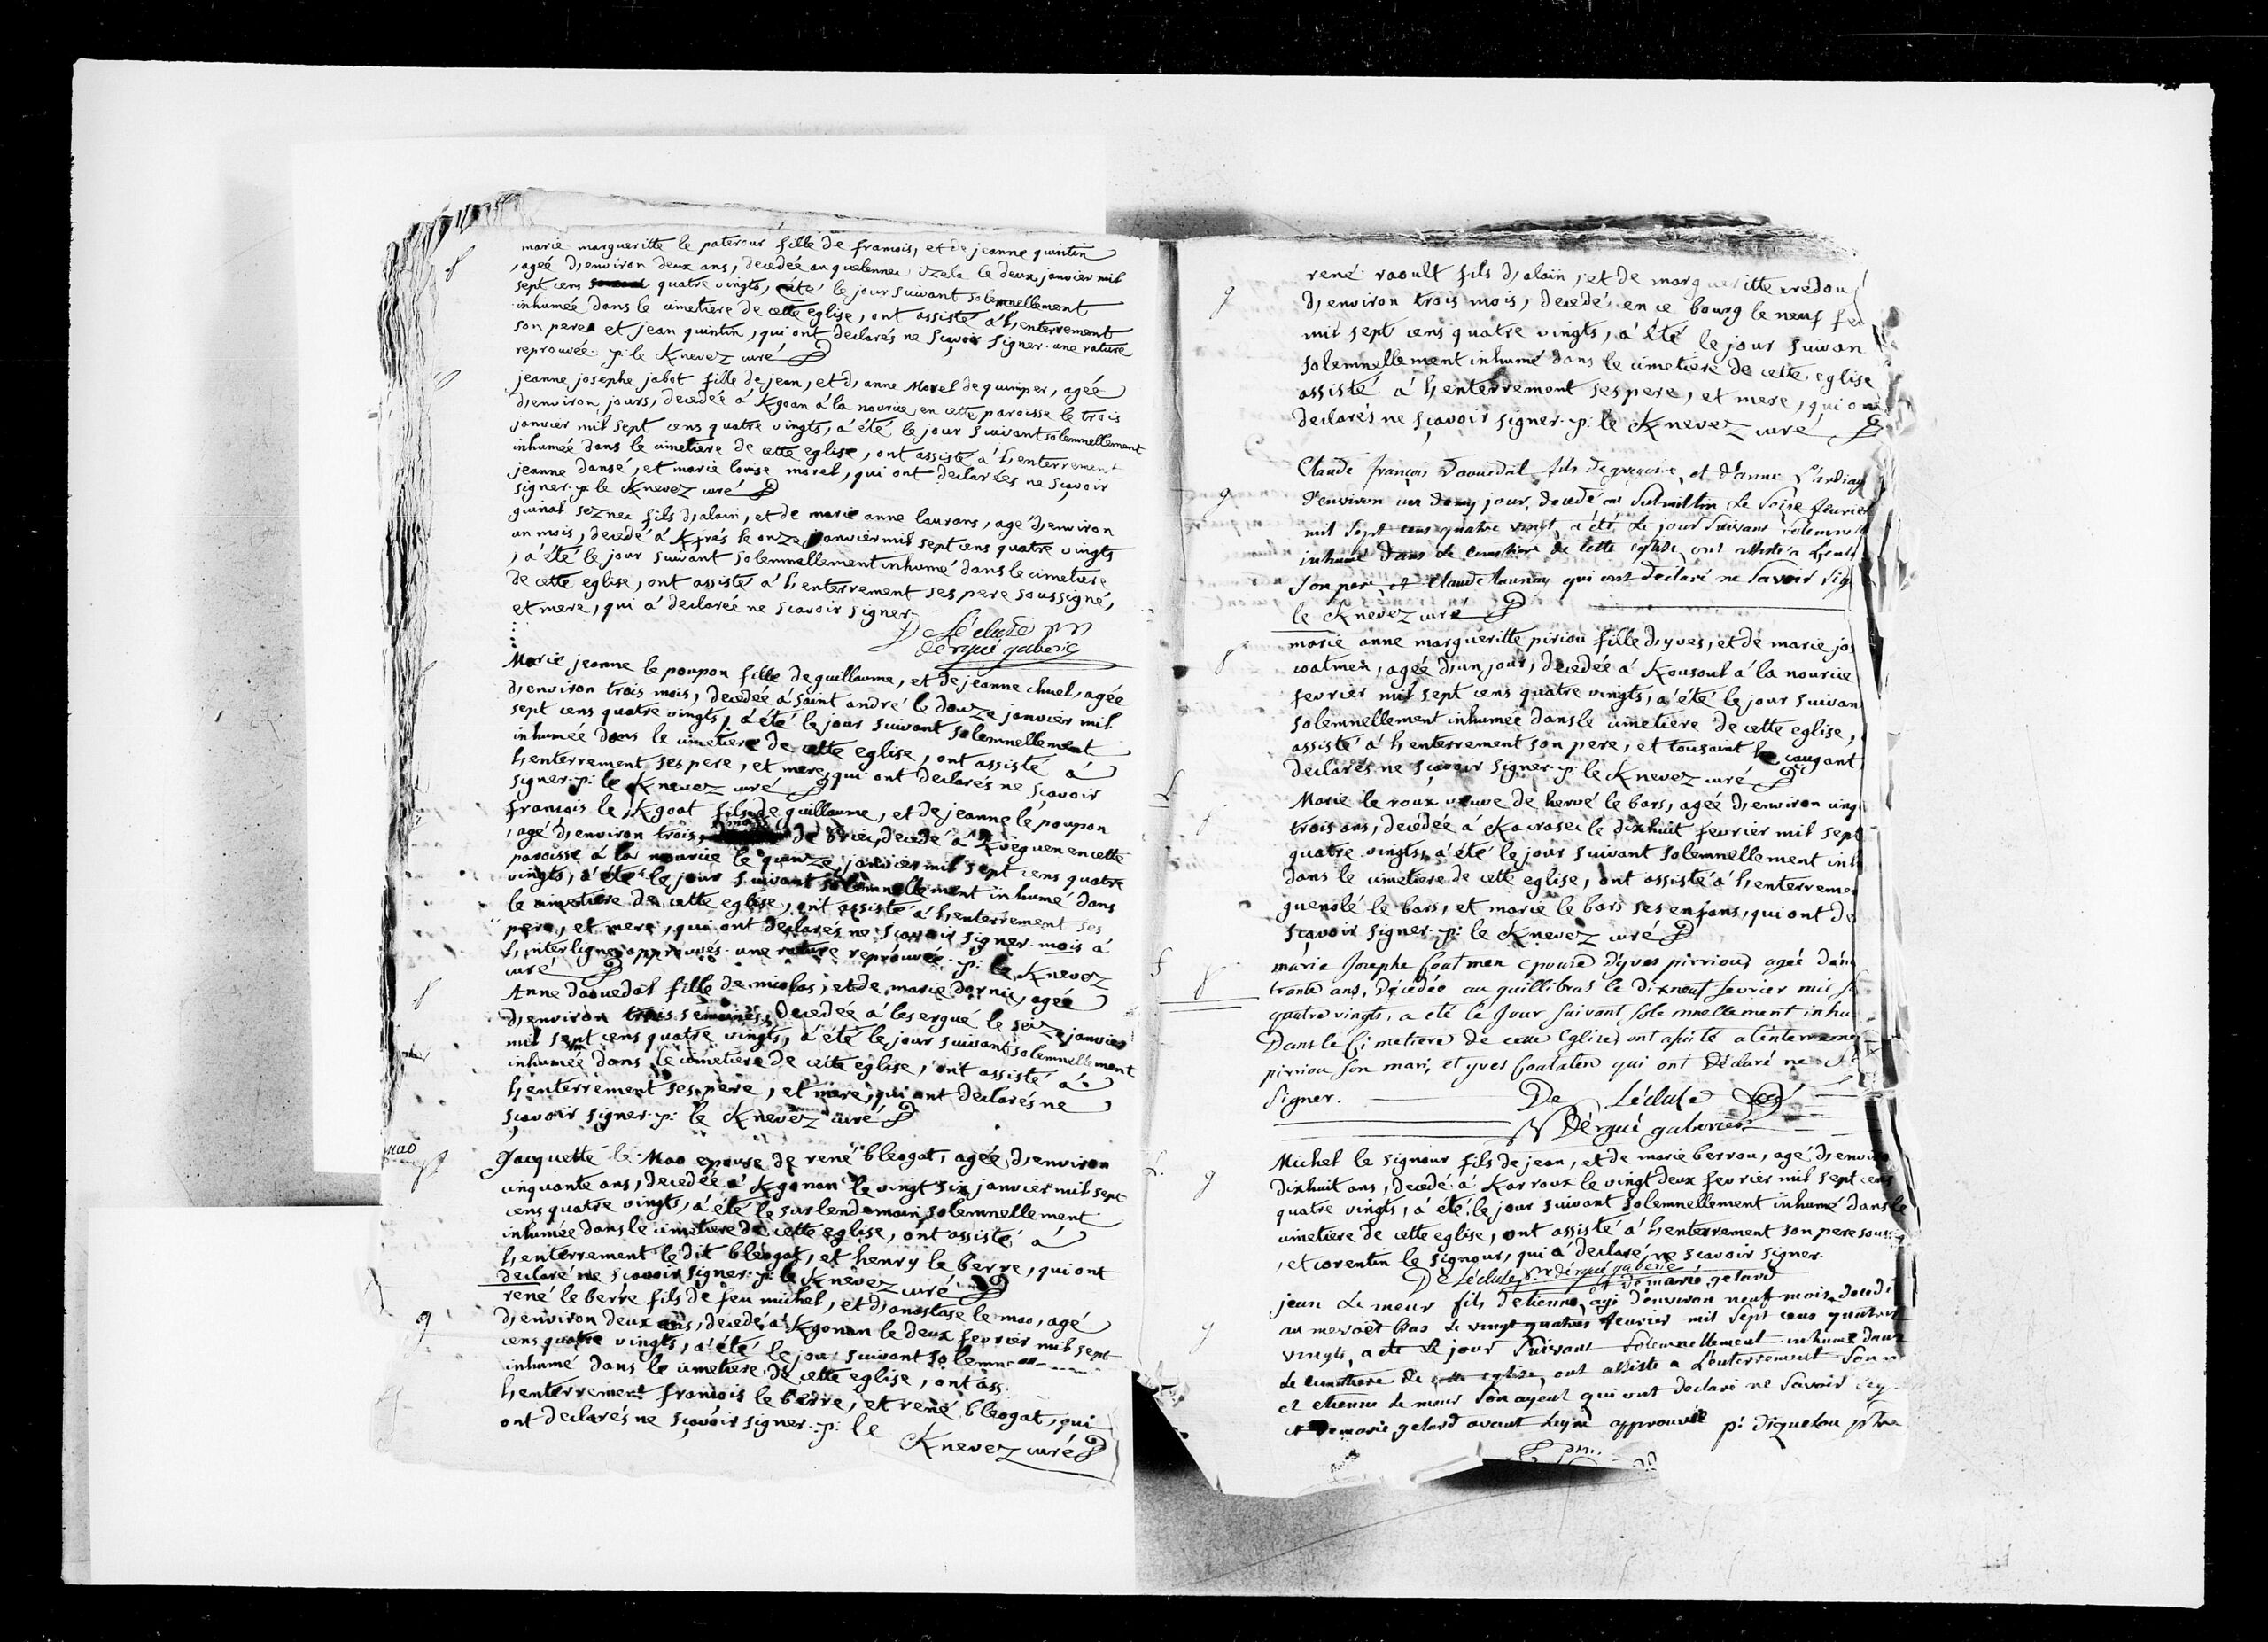 marie margueritte le paterour fille de francois, et de jeanne quintin
, ageé d,environ deux ans, decedeé au quelennec izela le deux janvier mil
sept cens quatre vingts, a été le jour suivant solemnellement
inhumeé dans le cimetiere de cette eglise, ont assisté á l,enterrement
son pere et jean quintin, qui ont declarés ne sçavoir signer. une rature
reprouveé. p: le Knevez curé
jeanne josephe jabot fille de jean, et d, anne Morel de quimper, ageé
d,environ jours, decedeé á Kgoan á la nourice en cette paroisse le trois
janvier mil sept cens quatre vingts, á été le jour suivant solemnellement
inhumeé dans le cimetiere de cette eglise, ont assisté á l,enterrement
jeanne dansé, et marie louise morel, qui ont declareés ne sçavoir
signer. p: le Knevez curé
guinal seznec fils d,alain, et de marie anne laurans, agé d,environ
un mois, decedé á Kfrés le onze janvier mil sept cens quatre vingts
, á été le jour suivant solemnellement inhumé dans le cimetiere
de cette eglise, ont assisté á l,enterrement ses pere soussigné,
et mere, qui á declareé ne sçavoir signer.
De Lécluse
d'ergué gaberic
Marie jeanne le poupon fille de guillaume, et de jeanne chuel, ageé
d,environ trois mois, decedeé á saint andré le douze janvier mil
sept cens quatre vingts, á été le jour suivant solemnellement
inhumeé dans le cimetiere de cette eglise, ont assisté á
l,enterrement ses pere, et mere, qui ont declarés ne sçavoir
signer. p: le Knevez curé
francois le Kgoat fils de guillaume, et de jeanne le poupon
mois
, agé d,environ trois, de briec, decedé á Kveguen en cette
paroisse á la nourice le quinze janvier mil sept cens quatre
vingts, á été le jour suivant solemnellement inhumé dans
le cimetiere de cette eglise, ont assisté á l,enterrement ses
pere, et mere, qui ont declarés ne sçavoir signer. mois á
l,interligne approuvés. une rature reprouveé. p: le Knevez
curé
Anne daouedal fille de nicolas, et de marie dornic, ageé
d,environ trois semaines, decedeé á lesergué le seize janvier
mil sept cens quatre vingts, á été le jour suivant solemnellement
inhumeé dans le cimetiere de cette eglise, ont assisté á
l,enterrement ses pere, et mere, qui ont declarés ne
sçavoir signer. p: le Knevez curé
Jacquette le Mao epouse de rené bleogat, ageé d,environ
cinquante ans, decedeé á Kgonan le vingt six janvier mil sept
cens quatre vingts, á été le surlendemain solemnellement
inhumeé dans le cimetiere de cette eglise, ont assisté á
l,enterrement le dit bléogat, et henry le berre, qui ont
declaré ne sçavoir signer. p: le Knevez curé
rené le berre fils de feu michel, et d,anastase le mao, agé
d,environ deux ans, decedé á Kgonan le deux fevrier mil sept
cens quatre vingts, á été le jour suivant solemne
inhumé dans le cimetiere de cette eglise, ont ass
l,enterrement francois le berre, et rené bleogat, qui
ont declarés ne sçavoir signer. p: le
Knevez curé
rené raoult fils d,alain, et de margueritte credou
d,environ trois mois, decedé en ce bourg le neuf fev
mil sept cens quatre vingts, á été le jour suivan
solemnellement inhumé dans le cimetiere de cette eglise
assisté á l,enterrement ses pere, et mere, qui on
declarés ne sçavoir signer. p: le Knevez curé
Claude françois Daouedal fils de gregoire, et d'anne
d'environ un demy jour, decedé au le seise fevrier
mil sept cens quatre vingt, a été le jour suivant solemnel
inhumé dans le cimetiere de cette eglise, ont assisté a l'ente
son pere, et Claude launay qui ont declaré ne savoir sig
le Knevez curé
marie anne margueritte piriou fille d,yves, et de marie jo
coatmen, ageé d,un jour, decedeé á Kousoul á la nourice
fevrier mil sept cens quatre vingts, á été le jour suivan
solemnellement inhumeé dans le cimetiere de cette eglise,
assisté á l,enterrement son pere, et tousaint le caugant
declarés ne sçavoir signer. p: le Knevez curé
Marie le roux veuve de hervé le bars, ageé d,environ ving
trois ans, decedeé á le dixhuit fevrier mil sept
quatre vingts, á été le jour suivant solemnellement inh
dans le cimetiere de cette eglise, ont assisté á l,enterreme
guenolé le bars, et marie le bars ses enfans, qui ont de
sçavoir signer. p: le Knevez curé
marie Josephe Coatmen epouse d'yves pirriou, ageé d'env
trente ans, décédée au quillibras le dixneuf fevrier mil s
quatre vingts, a eté le jour suivant solemnellement inhu
Dans le Cimetiere de cette Eglise, ont assisté a l'enterreme
pirriou son mari, et yves Coatalen qui ont déclaré ne
signer.
De Lécluse
d'ergué gaberic
Michel le signour fils de jean, et de marie berrou, agé d,envir
dixhuit ans, decedé á Karroux le vingt deux fevrier mil sept cens
quatre vingts, á été le jour suivant solemnellement inhumé dans le
cimetiere de cette eglise, ont assisté á l,enterrement son pere sous
, et corentin le signour, qui á declaré ne sçavoir signer.
De Lécluse d'ergué gaberic
et de marie gelard
jean Le meur fils d'etienne, agé d'environ neuf mois, decedé
au bras le vingt quatre fevrier mil sept cens quatre
vingts, a eté le jour suivant solemnellement inhumé dans
le cimetiere de cette eglise, ont assisté a l'enterrement son
et etienne le meur son ayeul qui ont declaré ne savoir sig
et de marie gelard approuvé p: diquelou ptre